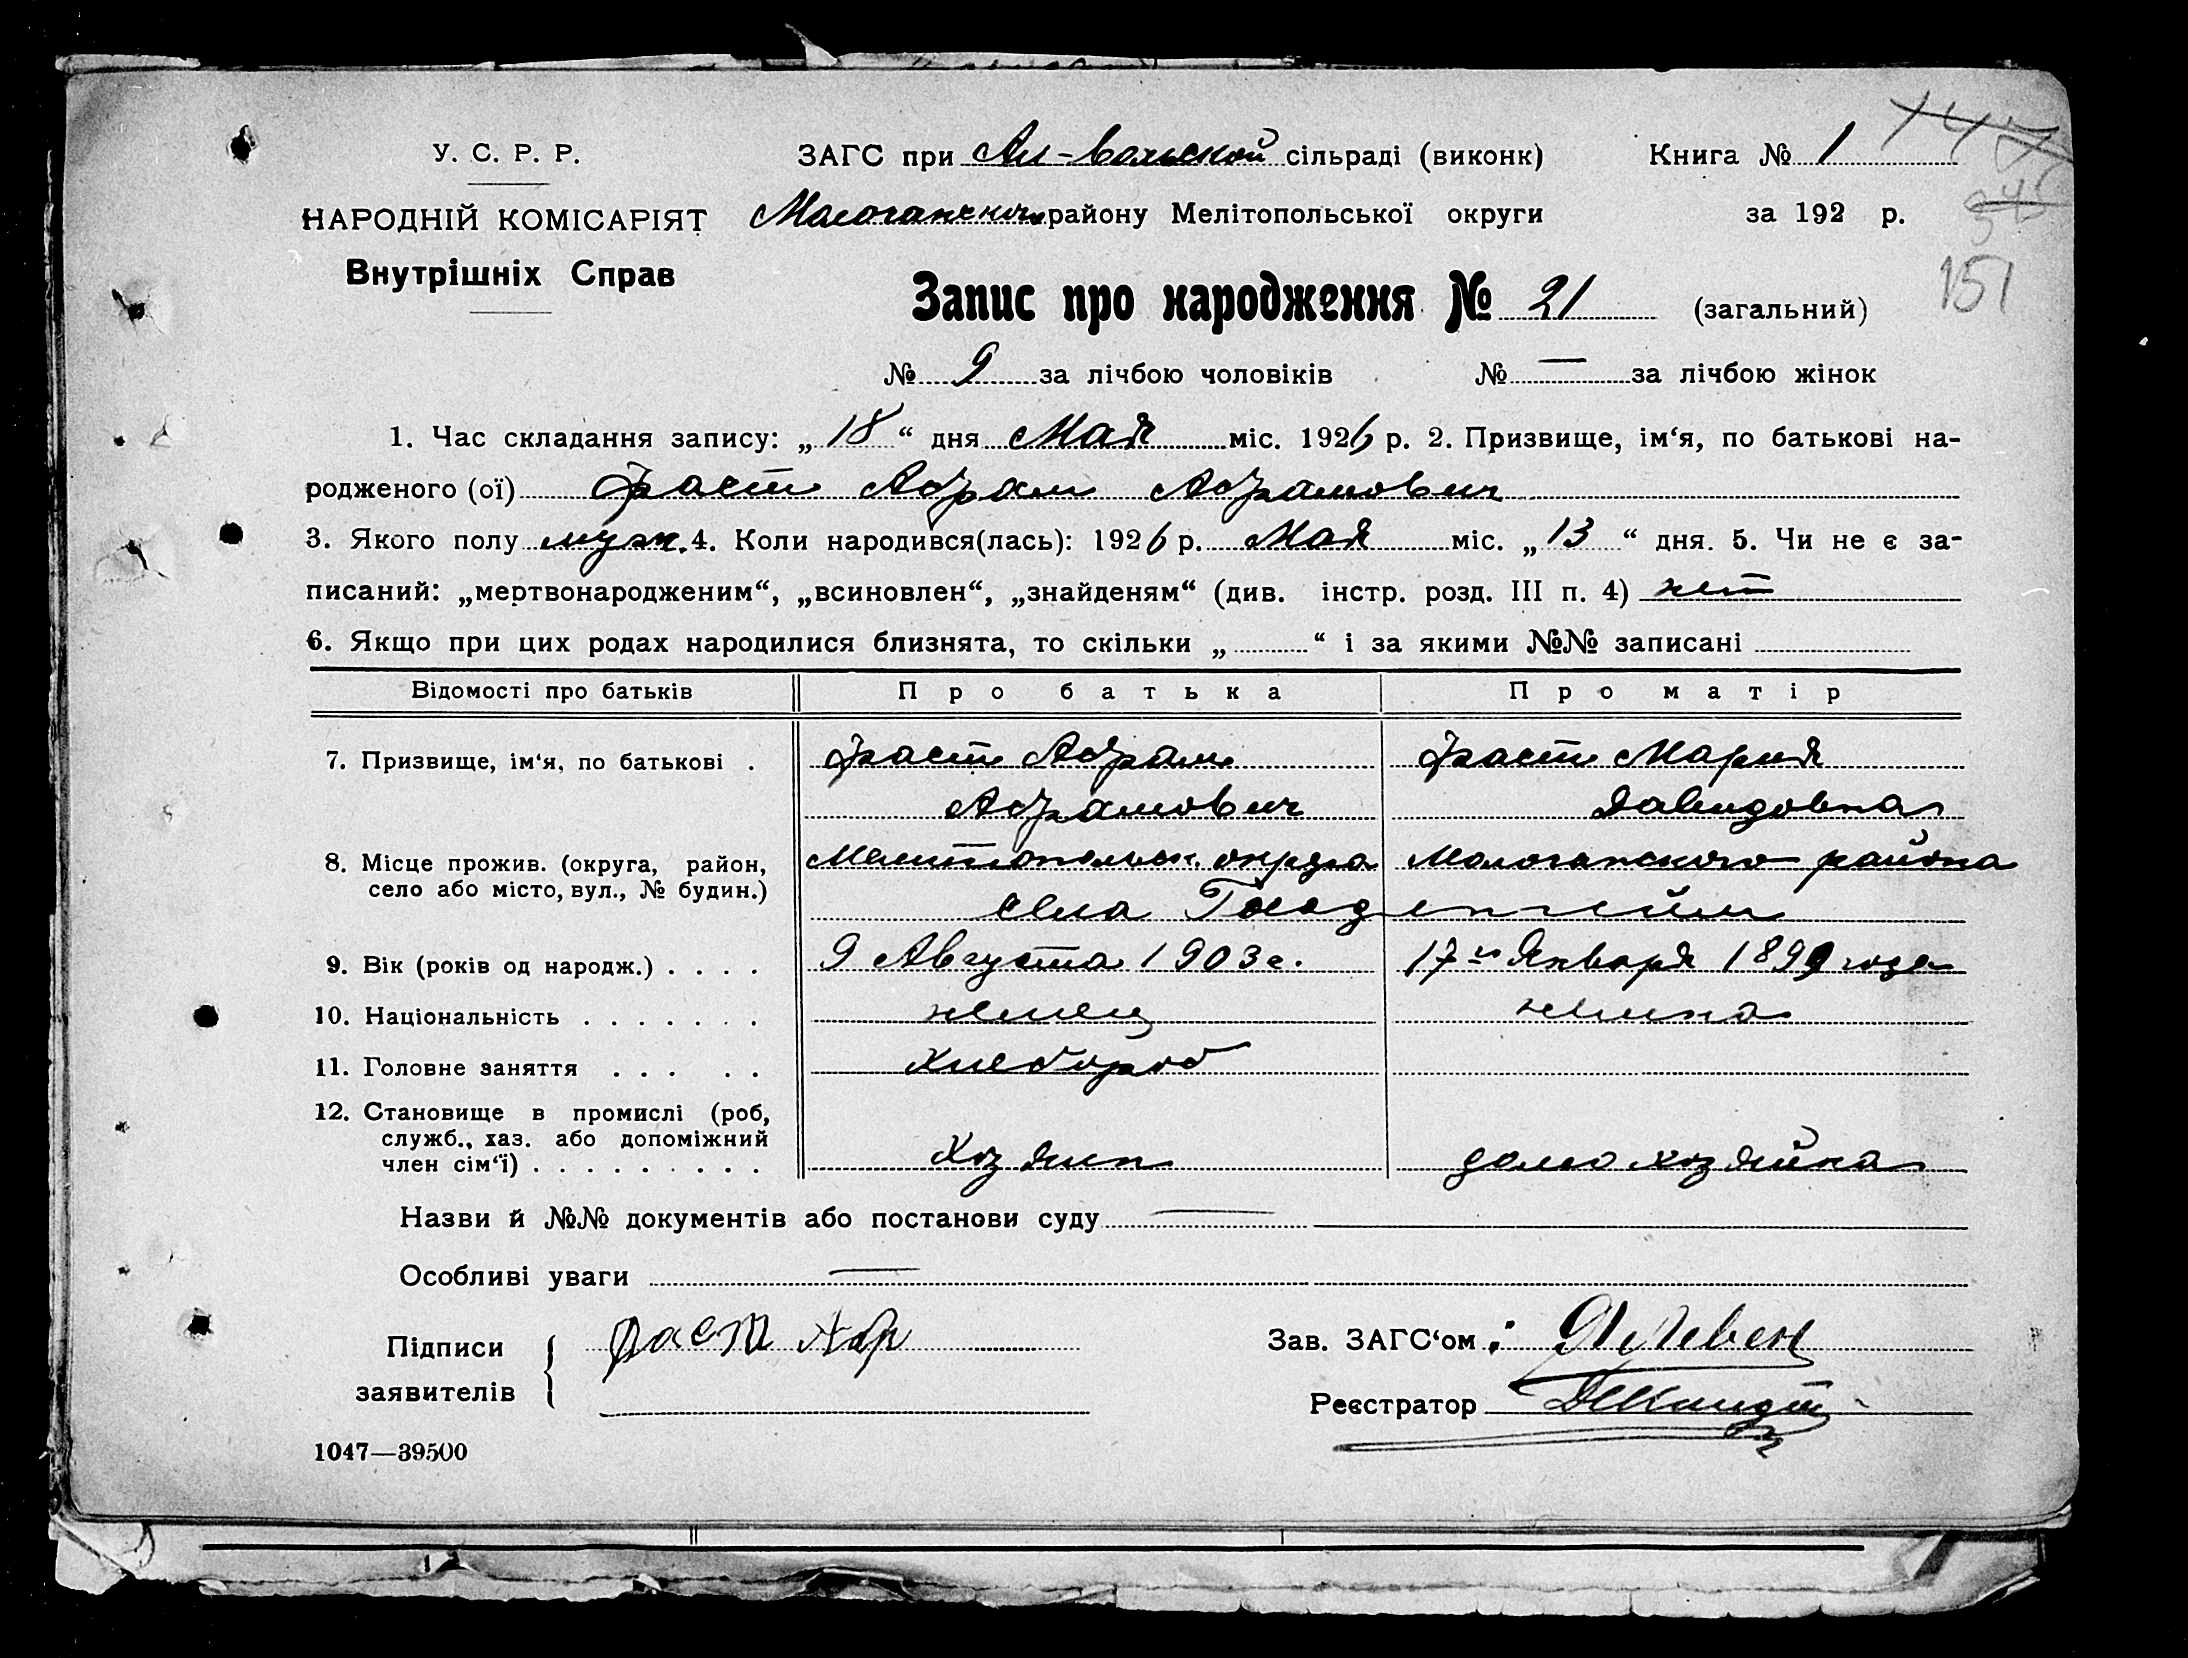 У. С. Р. Р.
НАРОДНІЙ КОМІСАРІЯТ
Внутрішніх Справ
ЗАГС при Ал-Вольской сільраді (виконк)
Молочанского району Мелітопольської округи
Книга № 1
за 192 р.
147
151
Запис про народження № 21 (загальний)
№ 9 за лічбою чоловіків № — за лічбою жінок
1. Час складання запису: „18“ дня Мая міс. 1926 р. 2. Призвище, ім‘я, по батькові на-
родженого (ої) Фаст Абрам Абрамович
3. Якого полу муж. 4. Коли народився(лась): 1926 р. Мая міс. „13“ дня. 5. Чи не є за-
писаний: „мертвонародженим“, „всиновлен“, „знайденям“ (див. інстр. розд. III п. 4) нет
6. Якщо при цих родах народилися близнята, то скільки „ “ і за якими №№ записані
Відомості про батьків Про батька Про матір
7. Призвище, ім‘я, по батькові . Фаст Абрам Фаст Мария
Абрамович Давидовна
8. Місце прожив. (округа, район, Мелитопольск. округа Молочанского района
село або місто, вул., № будин.) села
9. Вік (років од народж.) . . . . 9 Августа 1903 г. 17го Января 1899 года
10. Національність . . . . . . . немец немка
11. Головне заняття . . . . . Хлебороб
12. Становище в промислі (роб,
служб., хаз. або допоміжний
член сім‘ї) . . . . . . . . . Хозяин домохозяйка
Назви й №№ документів або постанови суду —
Особливі уваги —
Підписи
заявителів
Фаст Абр
Зав. ЗАГС‘ом
Реєстратор
1047—39500